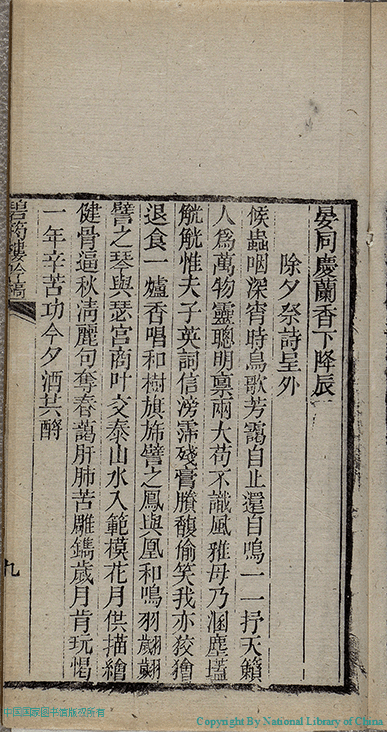 晏同慶蘭香下降辰
除夕祭詩呈外
候蟲咽深宵時鳥歌芳靄自止還自鳴一一抒天籟
人爲萬物靈聰明禀兩大苟不識風雅毋乃涵塵壒
觥觥惟夫子英詞信滂霈殘膏賸馥偷笑我亦狡獪
退食一爐香唱和樹旗斾譬之鳳與凰和鳴羽翽翽
譬之琴與瑟宮商叶交泰山水入範模花月供描繪
健骨逼秋淸麗句奪春藹肝肺苦雕鐫歲月肯玩愒
一年辛苦功今夕酒共酹
樓吟稿
九
中国国家图书馆版权所有
Copyright By National Library of China